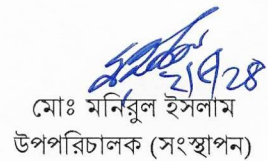 মোঃ মনিরুল ইসলাম
উপপরিচালক (সংস্থাপন)